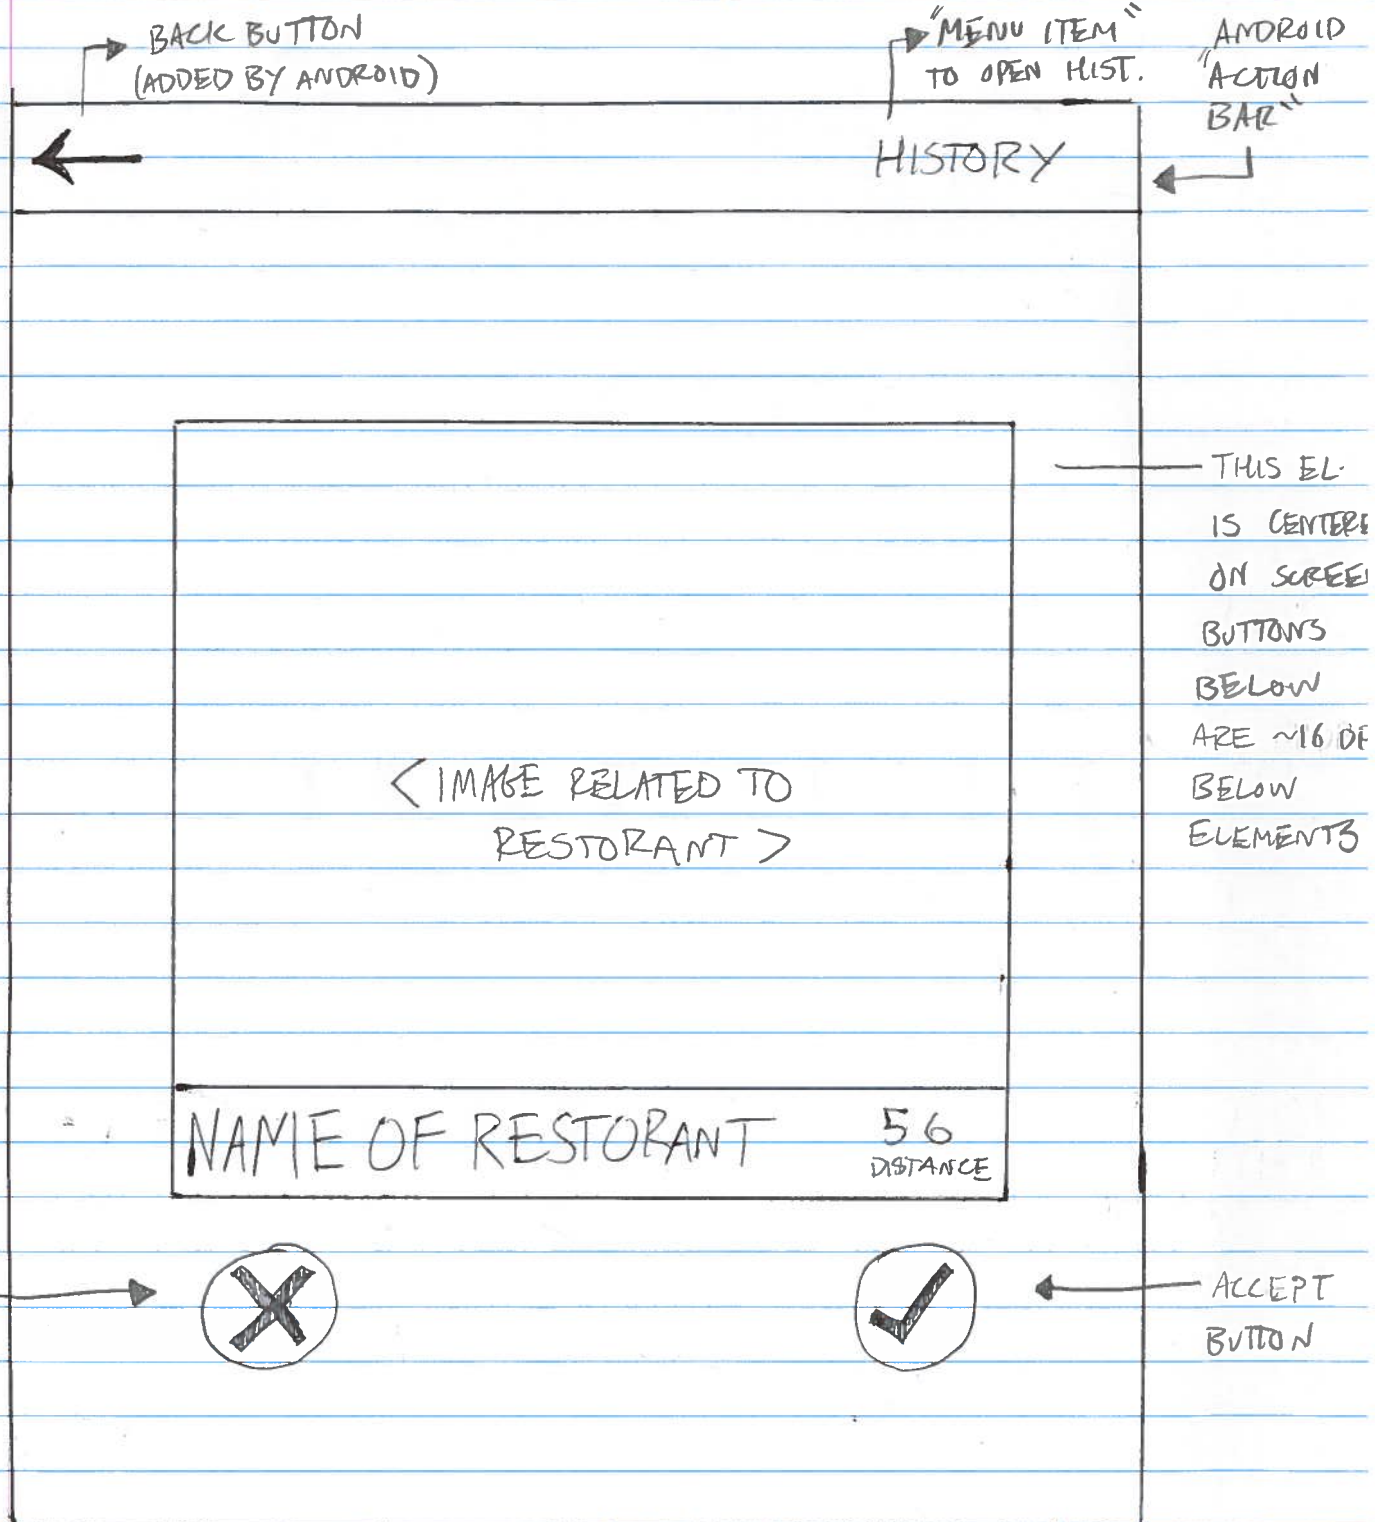 BACK BUTTON
(ADDED BY ANDROID)
"MENU ITEM"
TO OPEN HIST.
ANDROID
"ACTION
BAR"
HISTORY
THIS EL.
IS CENTERE
ON SCREE
BUTTONS
BELOW
ARE ~16 DP
BELOW
ELEMENTS
<IMAGE RELATED TO
RESTORANT>
NAME OF RESTORANT
56
DISTANCE
ACCEPT
BUTTON